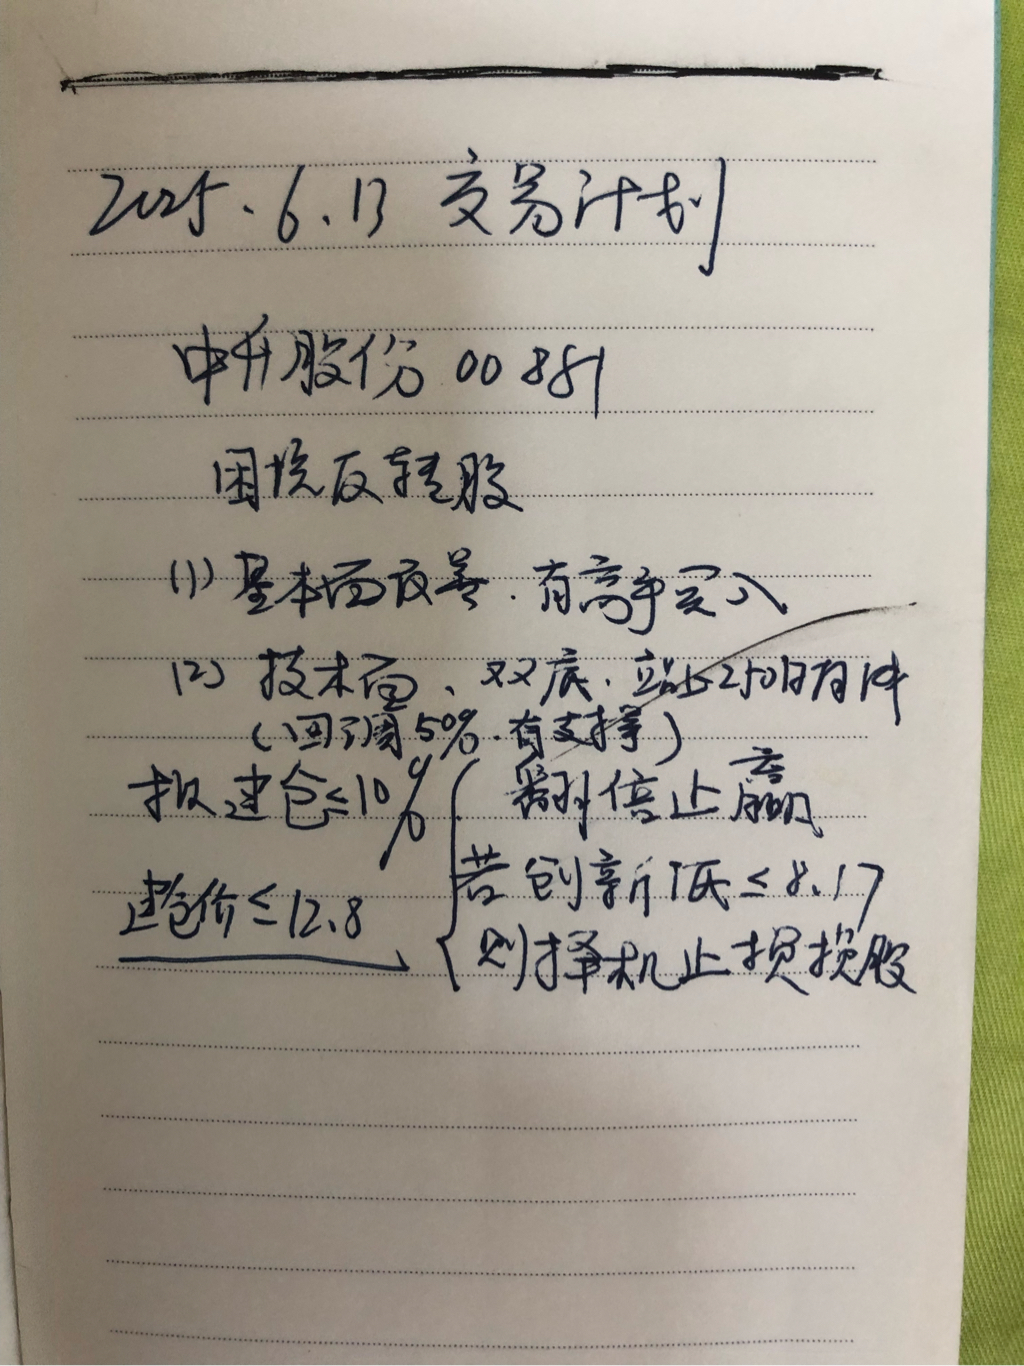 2025.6.13 交易计划
中升股份 00881
困境反转股
(1) 基本面改善.有高手买入
(2) 技术面、双底.站上250日有
(回调50%.有支撑)
拟建仓≤10% 翻倍止赢
若创新低≤8.17
建仓价≤12.8
则择机止损换股